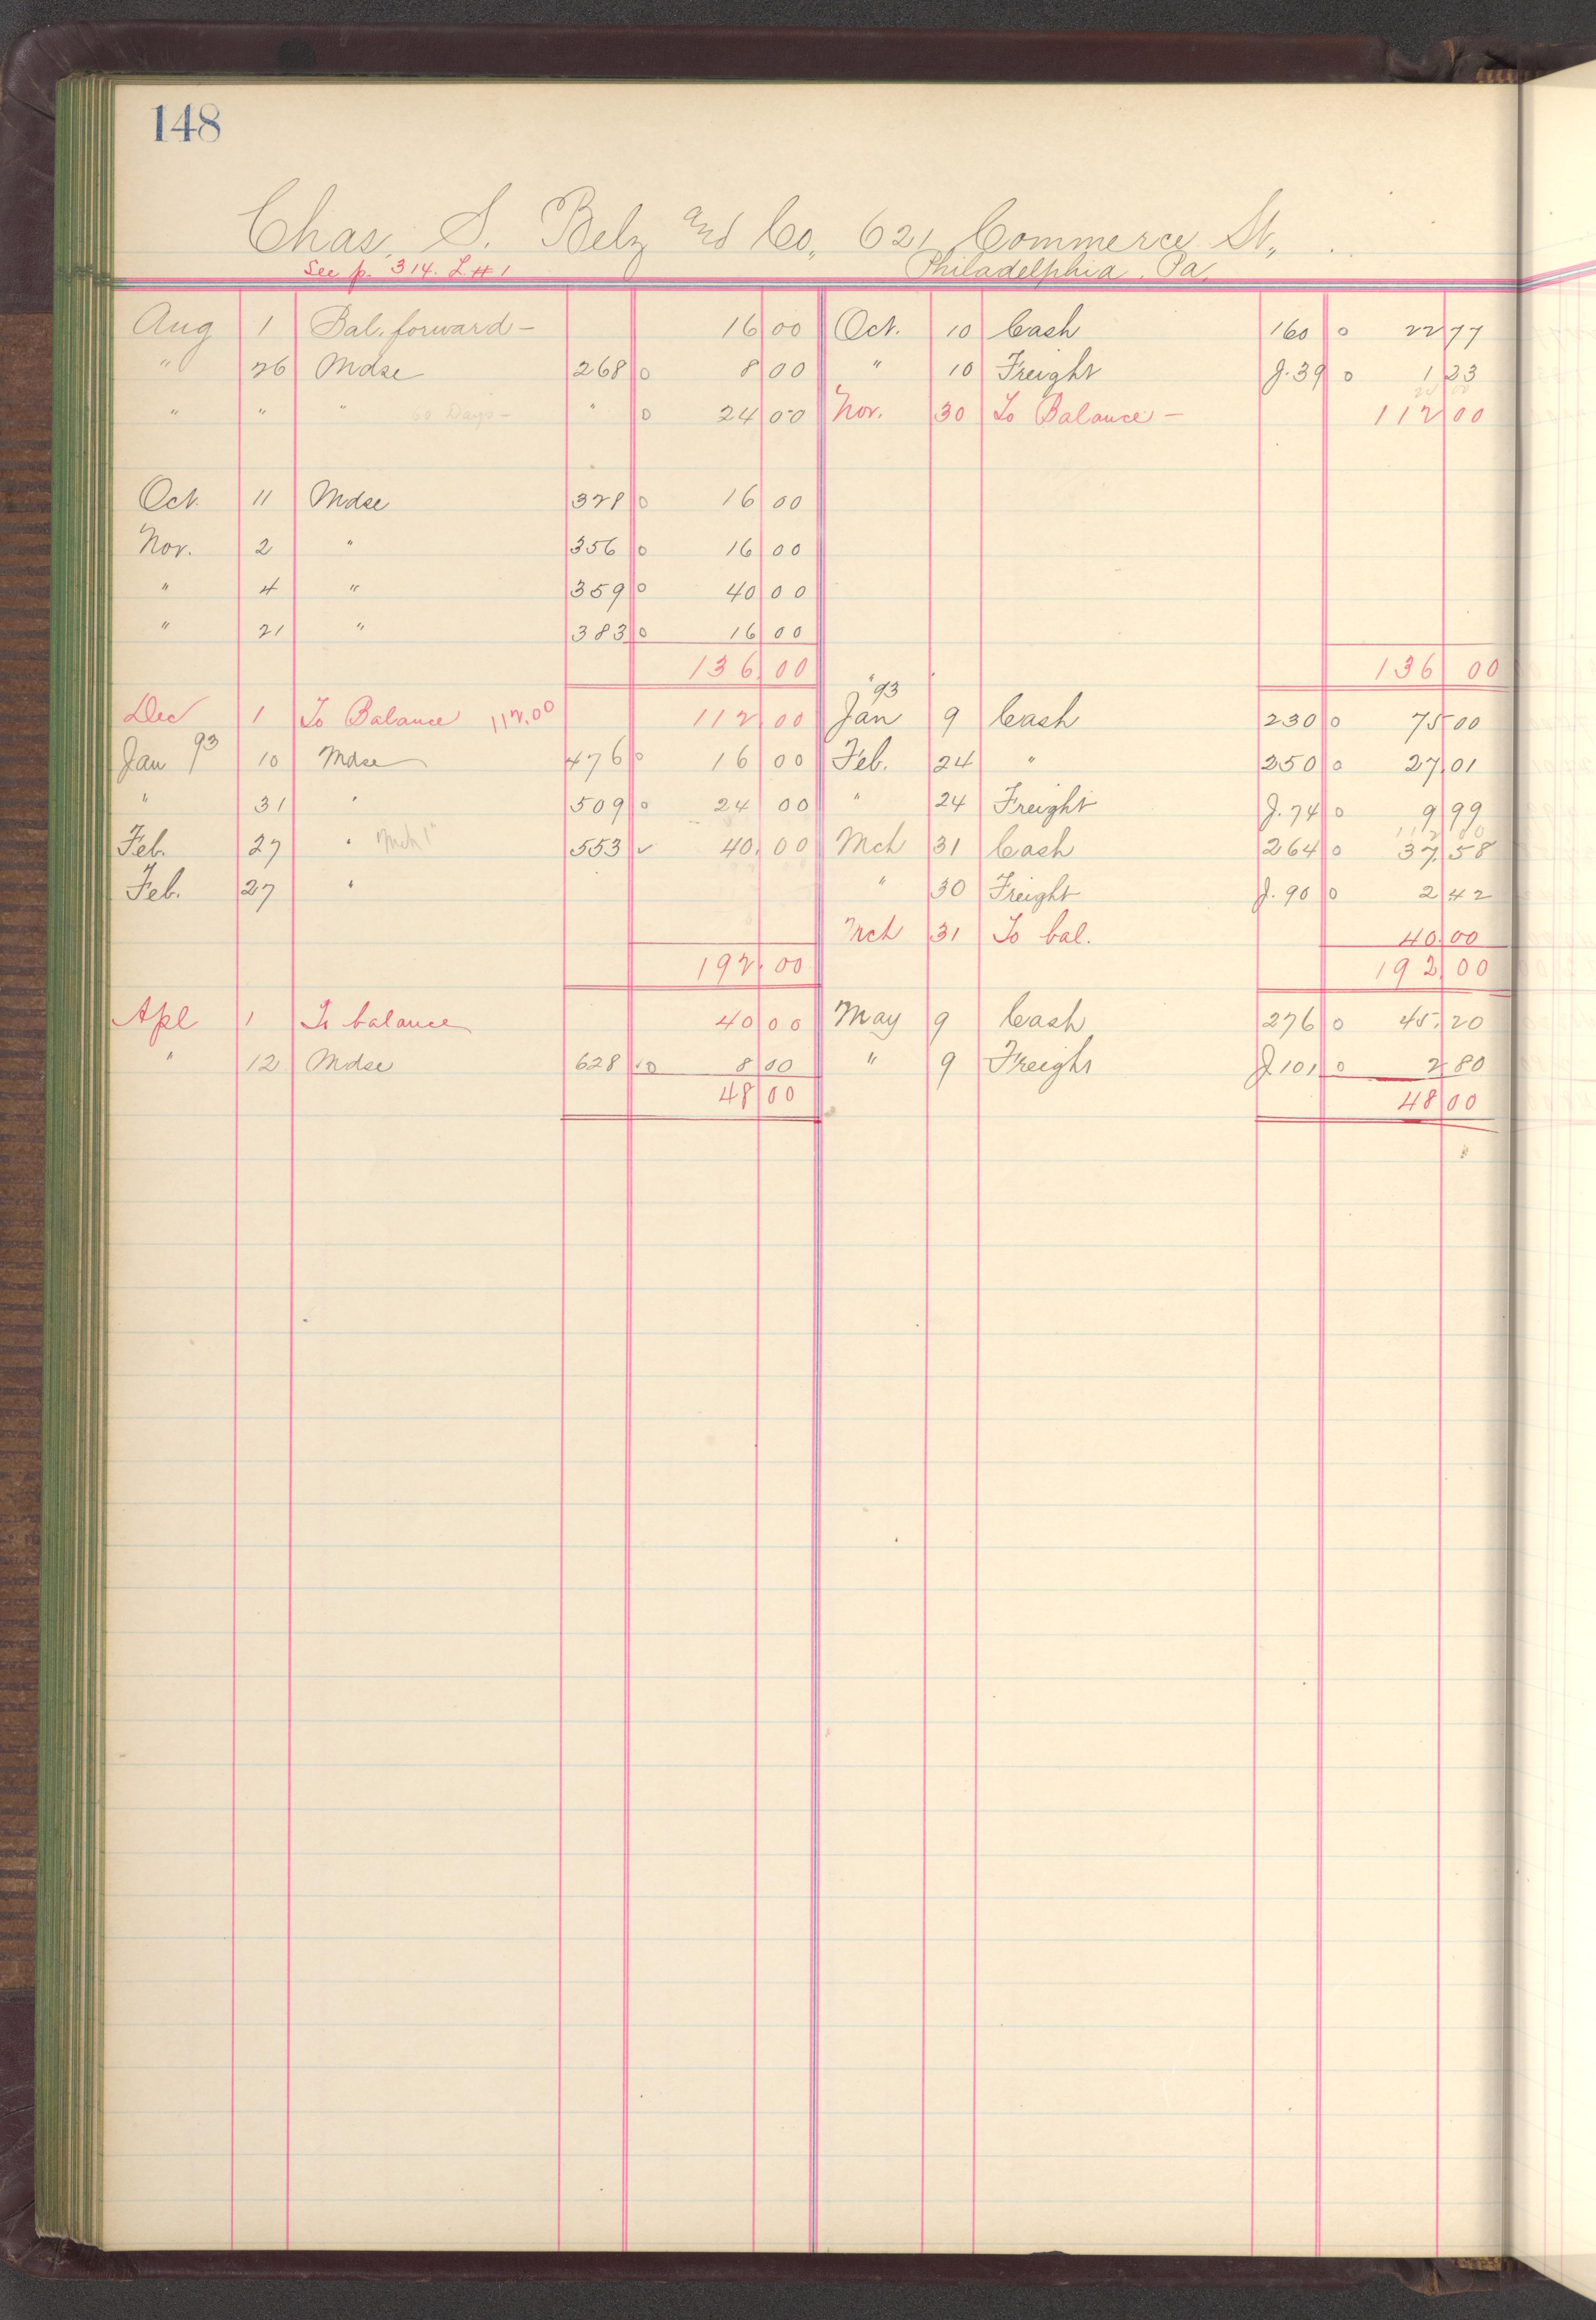 148
Chas. S. Belz and Co., 621 Commerce St.,
See p. 314. L#1 Philadelphia, Pa.
Aug 1 Bal. forward - 16 00 Oct. 10 Cash 160 0 22 77
" 26 Mdse 268 0 8 00 " 10 Freight J. 39 0 1 23
24 00
" " " 60 Days - " 0 24 00 Nov. 30 To Balance - 112 00
Oct. 11 Mdse 328 0 16 00
Nov. 2 " 356 0 16 00
" 4 " 359 0 40 00
" 21 " 383 0 16 00
136 00 136 00
'93
Dec 1 To Balance 112.00 112 00 Jan 9 Cash 230 0 75 00
Jan 93 10 Mdse 476 0 16 00 Feb. 24 " 250 0 27 01
" 31 " 509 0 24 00 " 24 Freight J. 74 0 9 99
112 00
Feb. 27 " Mch 1" 553 ✓ 40 00 Mch 31 Cash 264 0 37 58
Feb. 27 " " 30 Freight J. 90 0 2 42
Mch 31 To bal. 40 00
192 00 192 00
Apl 1 To balance 40 00 May 9 Cash 276 0 45 20
" 12 Mdse 628 0 8 00 " 9 Freight J. 101 0 2 80
48 00 48 00